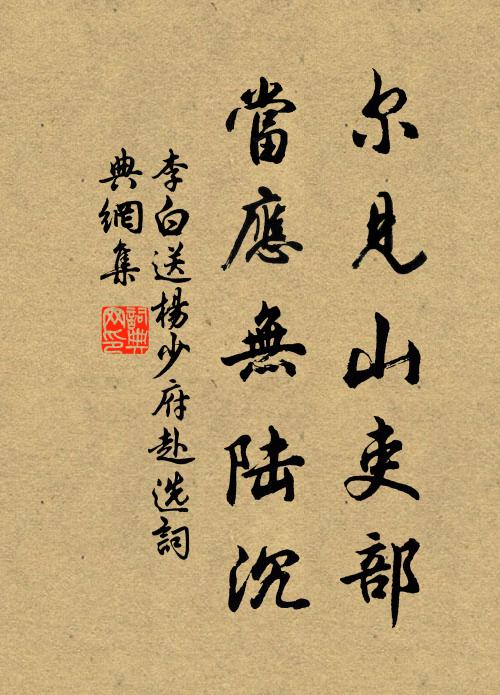 尔見山吏部
當應無陆沉
李白送楊少府赴选詞
典網集
詞典
网印